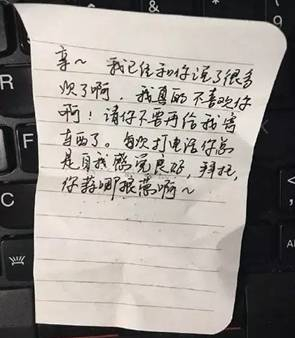 亲~ 我已经和你说了很多
次了啊，我真的不喜欢你
啊！请你不要再给我寄
东西了。每次打电话你总
是自我感觉良好，拜托，
你荡哪根藻啊~
C
F